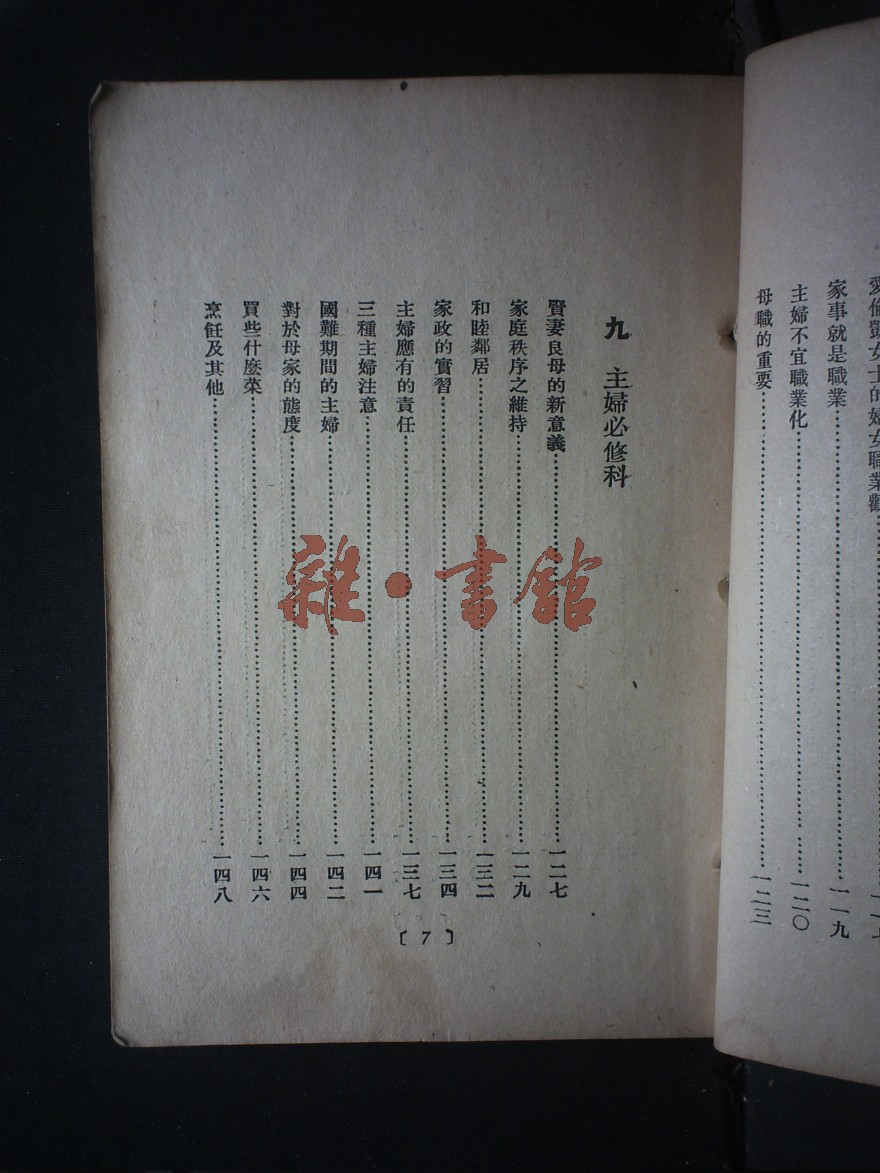 愛倫凱女士的婦女職業觀
家事就是職業……一一九
主婦不宜職業化……一二〇
母職的重要……一二三
九 主婦必修科
賢妻良母的新意義……一二七
家庭秩序之維持……一二九
和睦鄰居……一三二
家政的實習……一三四
主婦應有的責任……一三七
三種主婦注意……一四一
國難期間的主婦……一四二
對於母家的態度……一四四
買些什麼榮……一四六
烹飪及其他……一四八
〔7〕
雜·書館